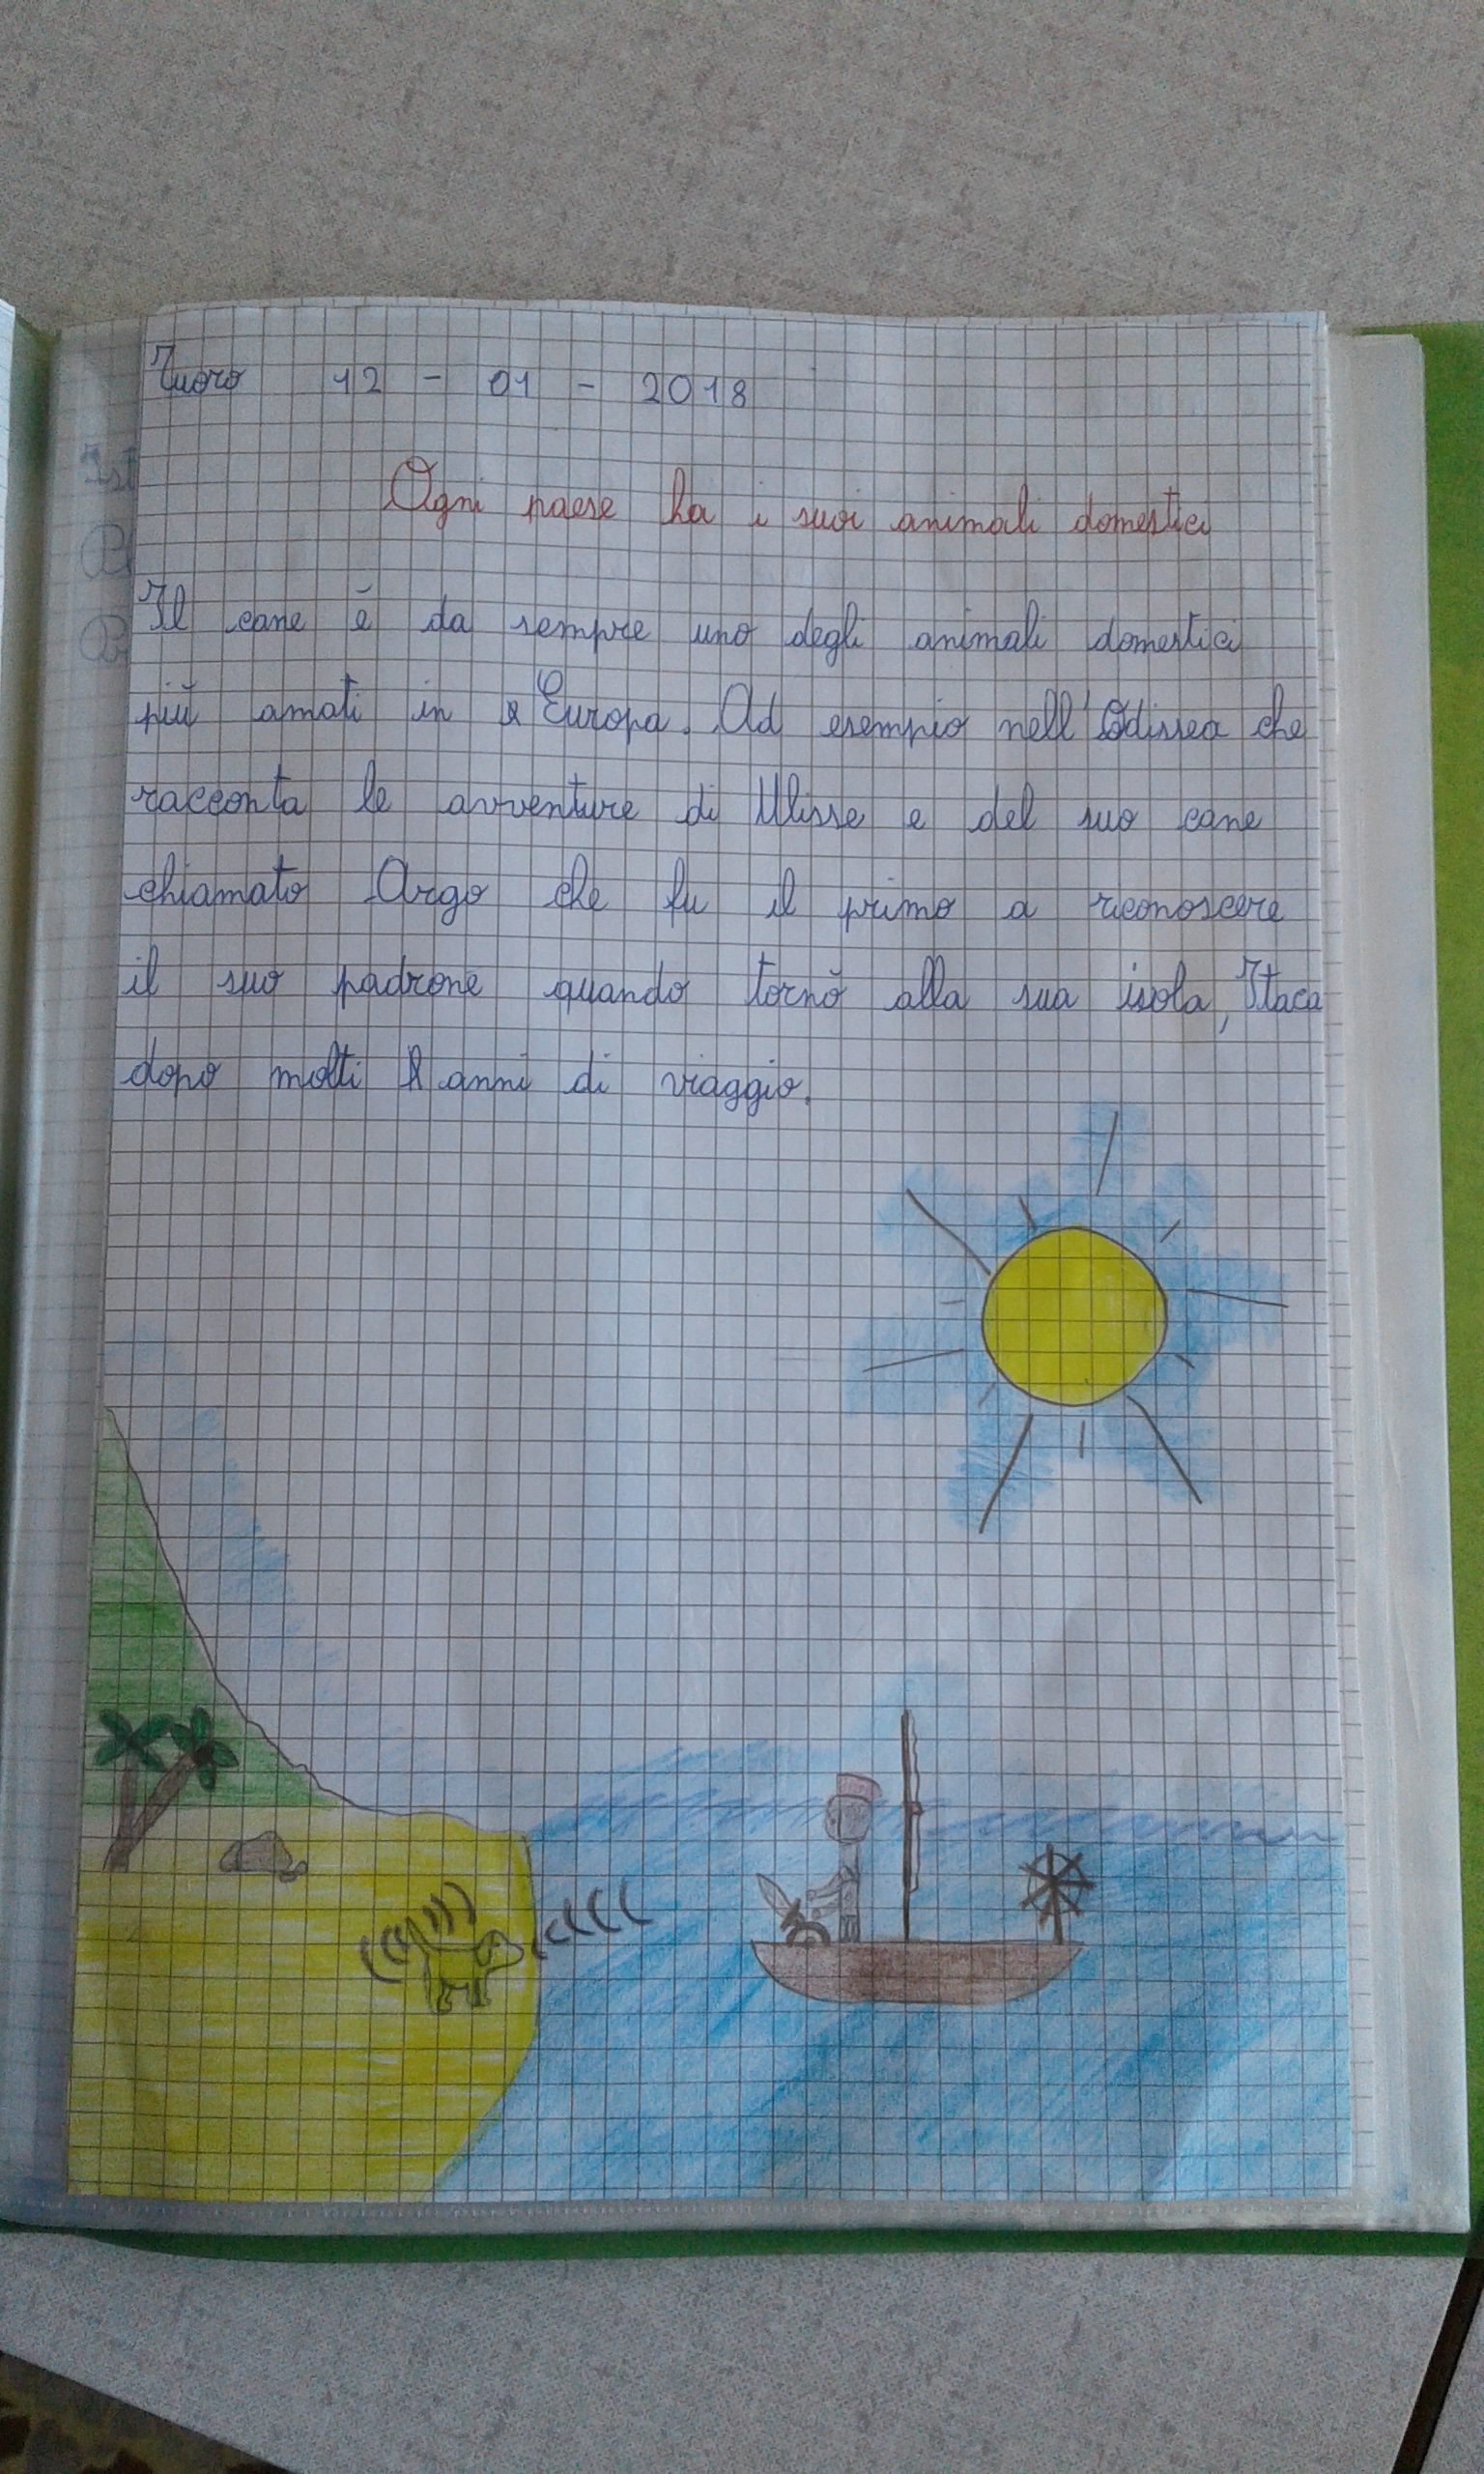 Tuoro 12 - 01 - 2018
Ogni paese ha i suoi animali domestici
Il cane è da sempre uno degli animali domestici
più amati in Europa. Ad esempio nell'Odissea che
racconta le avventure di Ulisse e del suo cane
chiamato Argo che fu il primo a riconoscere
il suo padrone quando tornò alla sua isola, Itaca
dopo molti anni di viaggio.